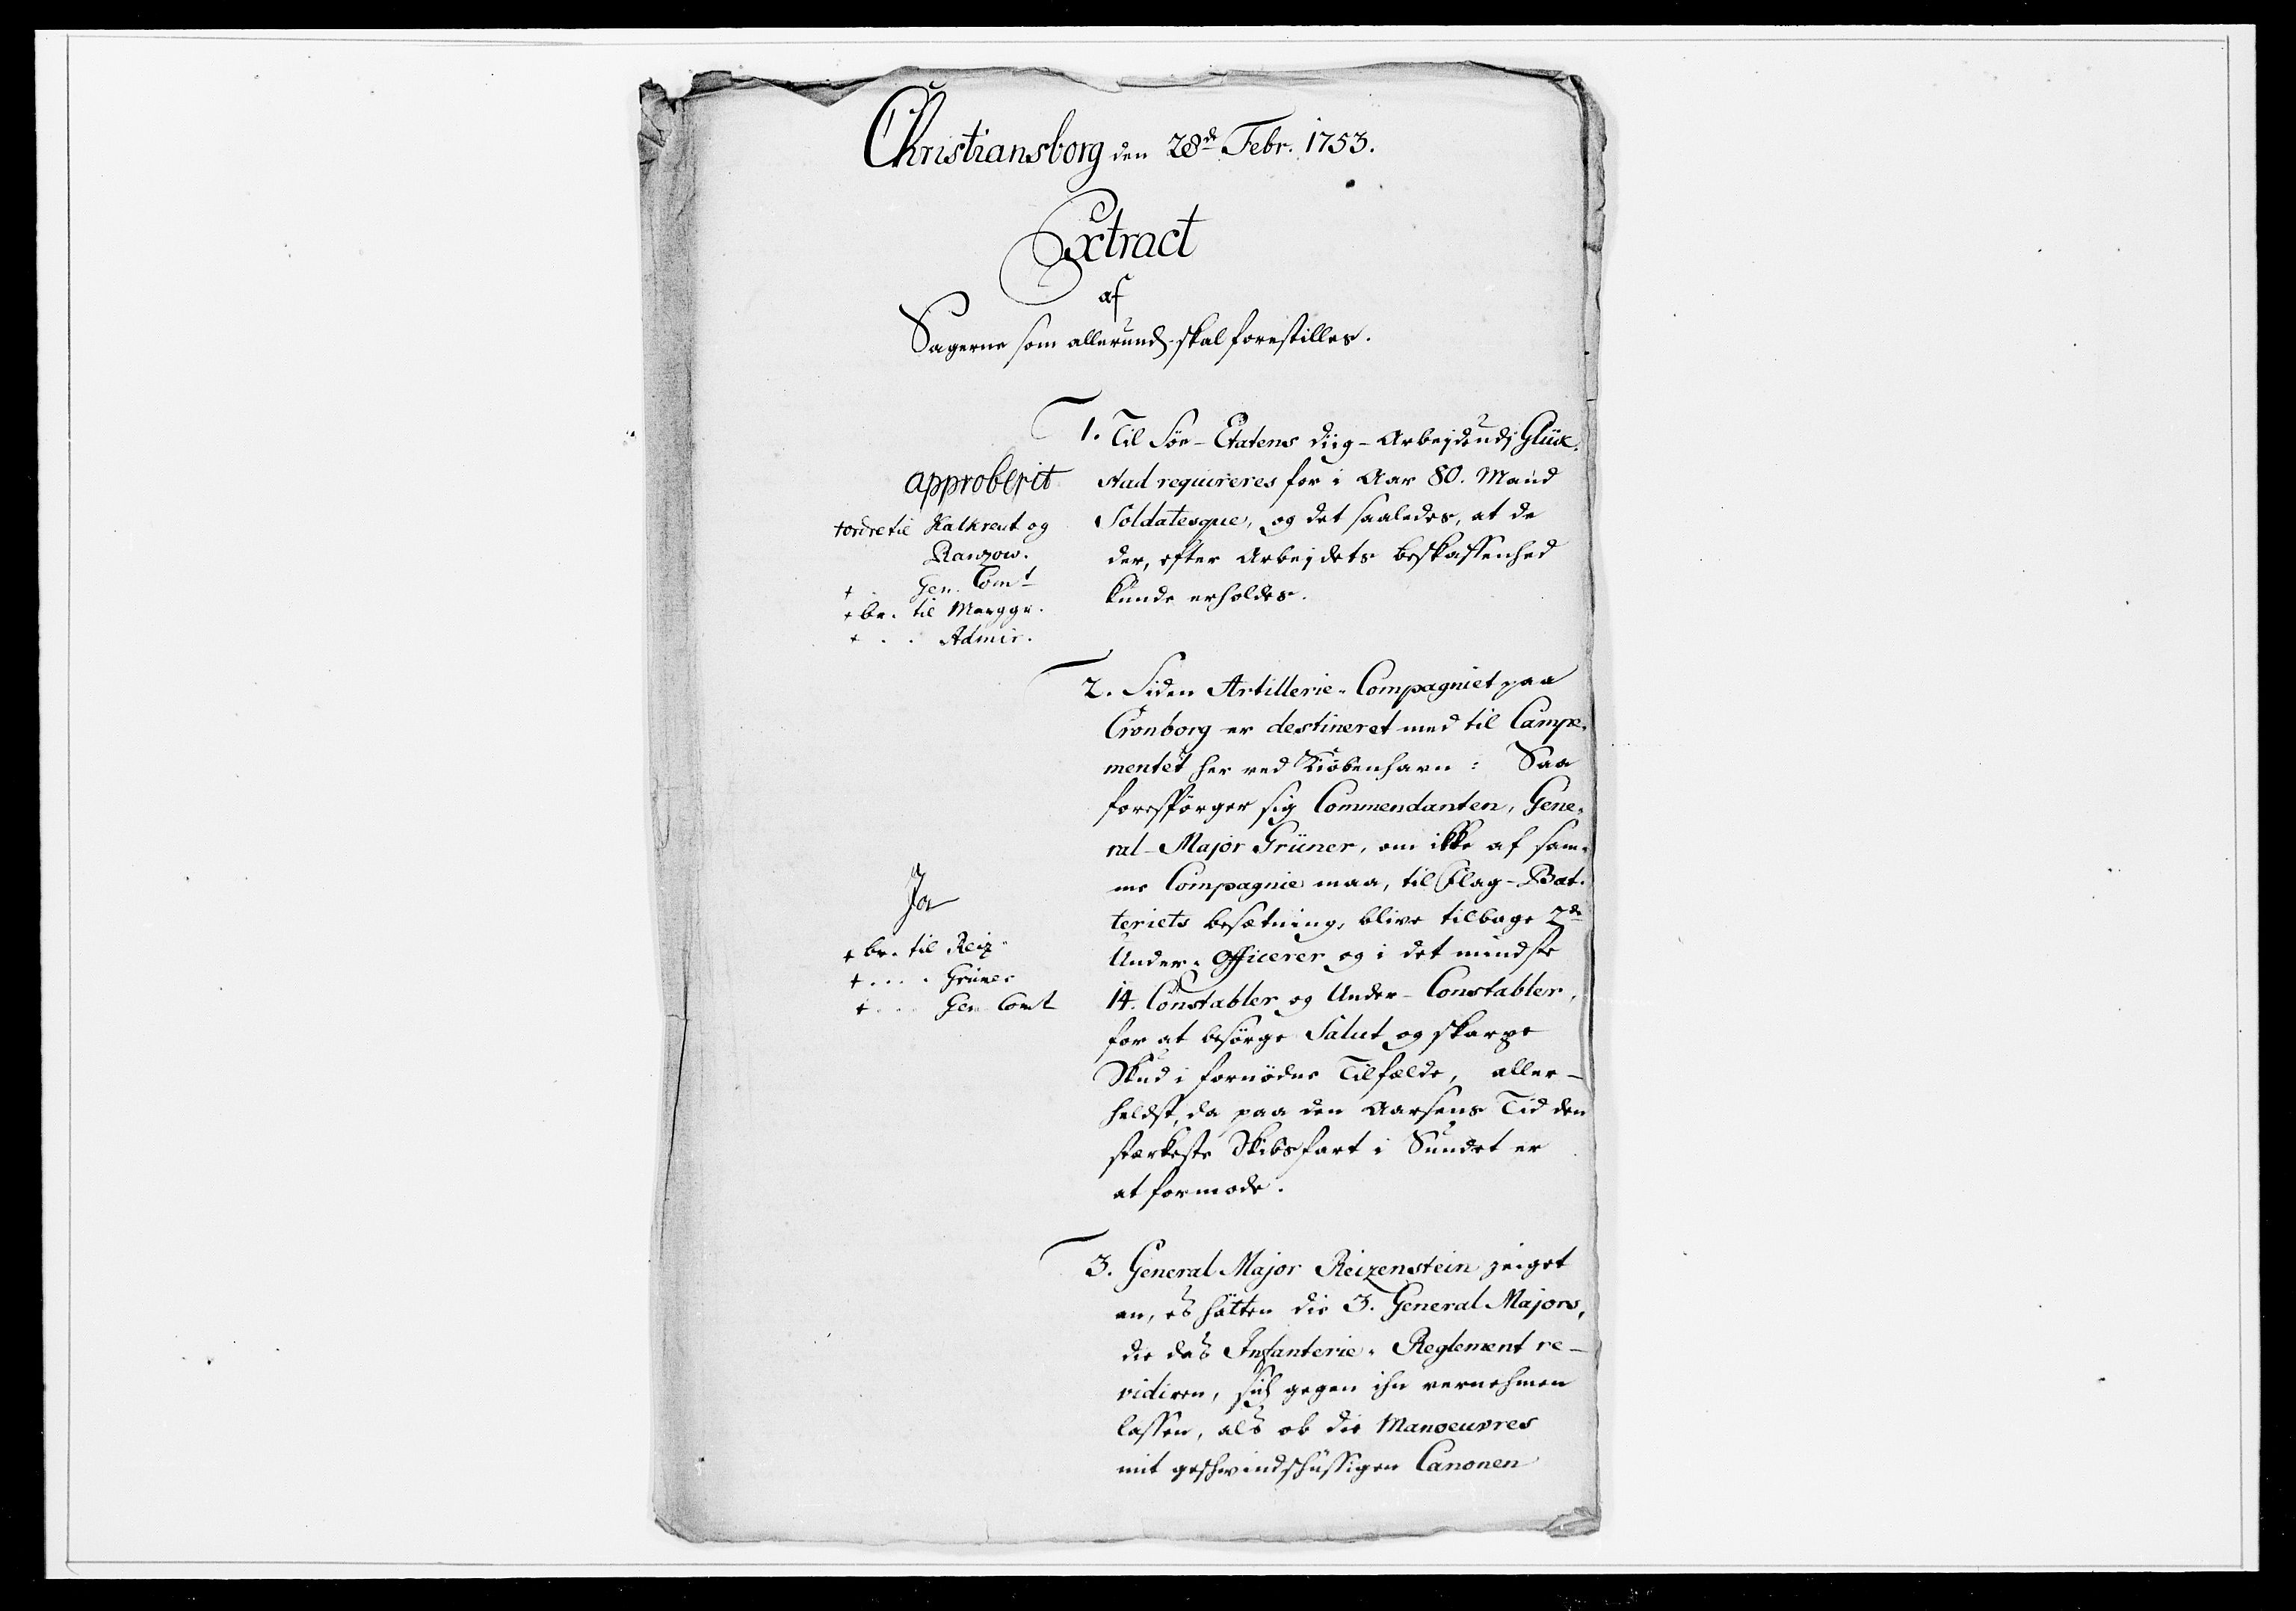 Christiansborg den 28de Febr. 1753.
Extract
af
Sagerne som allerund. skal forestilles.
1. Til Söe-Etatens Diig-Arbejde udj Glük-
stad requireres for i Aar 80. Mand
Soldatesque, og det saaledes, at de
der, efter Arbejdets beskaffenhed
kunde erholdes.
approberit
+ ordre til Kalkreut og
Ranzow.
+ . Gen. Comt
+ br. til Marggr.
+ . . Admir.
2. Siden Artillerie-Compagniet paa
Cronborg er destineret med til Campe-
mentet her ved Kiöbenhavn: Saa
forespörger sig Commendanten, Gene-
ral-Major Grüner, om ikke af sam-
me Compagnie maa, til Flag-Bat-
teriets besætning, blive tilbage 2de
Under-Officerer og i det mindste
14. Constabler og Under-Constabler,
for at besörge Salut og skarpe
Skud i fornödne Tilfælde, aller-
heldst, da paa den Aarsens Tid den
stærkeste Skibsfart i Sundet er
at formode.
Ja
+ br. til Reiz
+ . . . . Grüner
+ . . . . Gen Comt
3. General Major Reizenstein zeiget
an, es hätten die 3. General Majors,
die das Infanterie-Reglement re-
vidiren, sich gegen ihn vernehmen
lassen, als ob die Manoeuvres
mit geschwindschüssigen Canonen